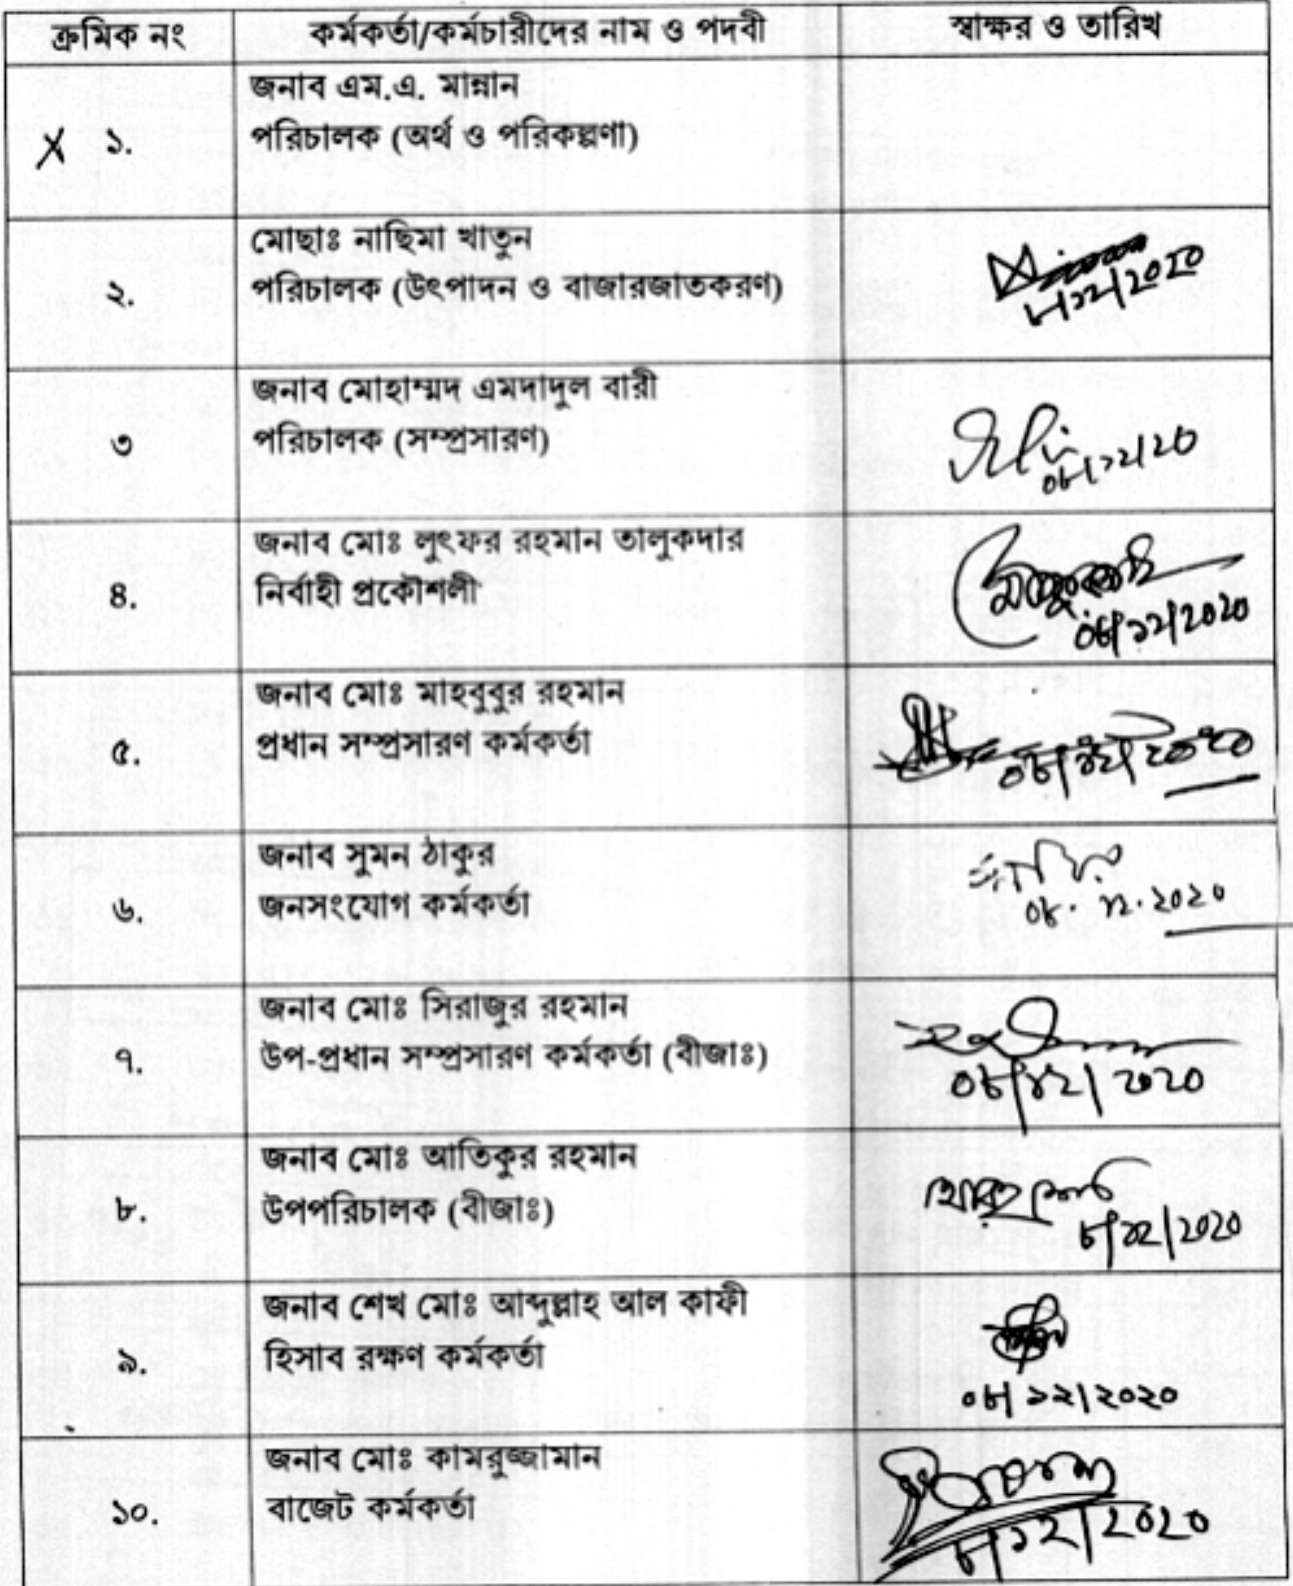 ক্রমিক নং কর্মকর্তা/কর্মচারীদের নাম ও পদবী স্বাক্ষর ও তারিখ
জনাব এম.এ. মান্নান
X ১. পরিচালক (অর্থ ও পরিকল্পণা)
মোছাঃ নাছিমা খাতুন
২. পরিচালক (উৎপাদন ও বাজারজাতকরণ)
৮/১২/২০২০
জনাব মোহাম্মদ এমদাদুল বারী
৩ পরিচালক (সম্প্রসারণ)
০৮/১২/২০
জনাব মোঃ লুৎফর রহমান তালুকদার
৪. নির্বাহী প্রকৌশলী
০৮/১২/২০২০
জনাব মোঃ মাহবুবুর রহমান
৫. প্রধান সম্প্রসারণ কর্মকর্তা
০৮/১২/২০২০
জনাব সুমন ঠাকুর
৬. জনসংযোগ কর্মকর্তা
০৮.১২.২০২০
জনাব মোঃ সিরাজুর রহমান
৭. উপ-প্রধান সম্প্রসারণ কর্মকর্তা (বীজাঃ)
০৮/১২/২০২০
জনাব মোঃ আতিকুর রহমান
৮. উপপরিচালক (বীজাঃ)
৮/১২/২০২০
জনাব শেখ মোঃ আব্দুল্লাহ আল কাফী
৯. হিসাব রক্ষণ কর্মকর্তা
০৮/১২/২০২০
জনাব মোঃ কামরুজ্জামান
১০. বাজেট কর্মকর্তা
৮/১২/২০২০